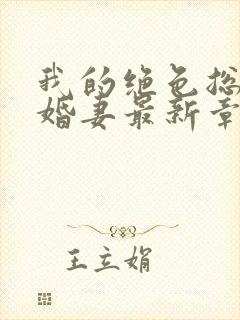 我的绝色总
婚妻最新章
王立娟